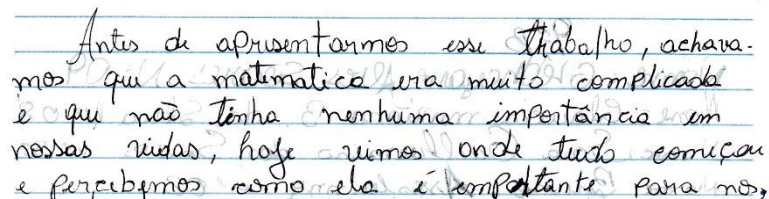 Antes de apresentarmos esse trabalho, achava-
mos que a matematica era muito complicada
e que não tinha nenhuma importância em
nossas vidas, hoje vimos onde tudo começou
e percebemos como ela é importante para nos,